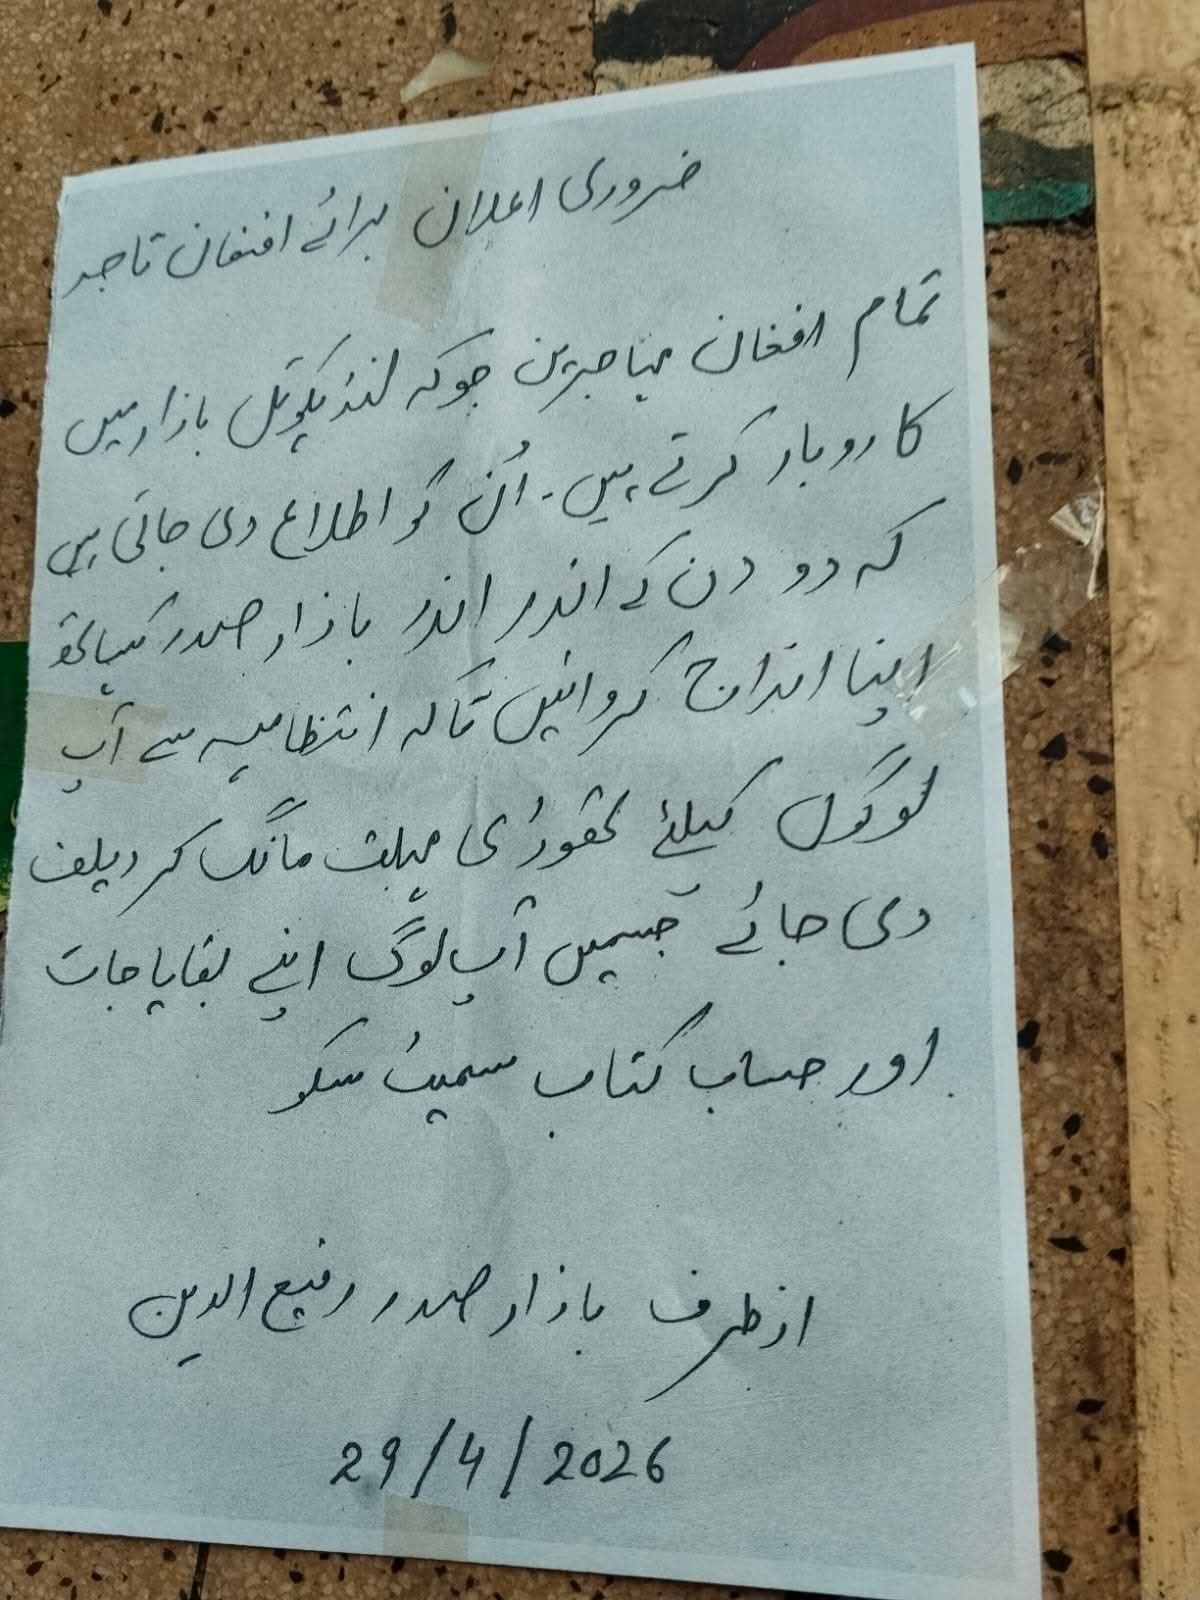 ضروری اعلان برائے افغان تاجر
تمام افغان مہاجرین جوکہ لنڈیکوتل بازار میں
کاروبار کرتے ہیں۔ اُن کو اطلاع دی جاتی ہیں
کہ دو دن کے اندر اندر بازار صدر کیساتھ
اپنا اندراج کروائیں تاکہ انتظامیہ سے آپ
لوگوں کیلئے تھوڑی مہلت مانگ کر ریلف
دی جائے جسمیں آپ لوگ اپنے بقایاجات
اور حساب کتاب سمیٹ سکو
ازطرف بازار صدر رفیع الدین
29/4/2026